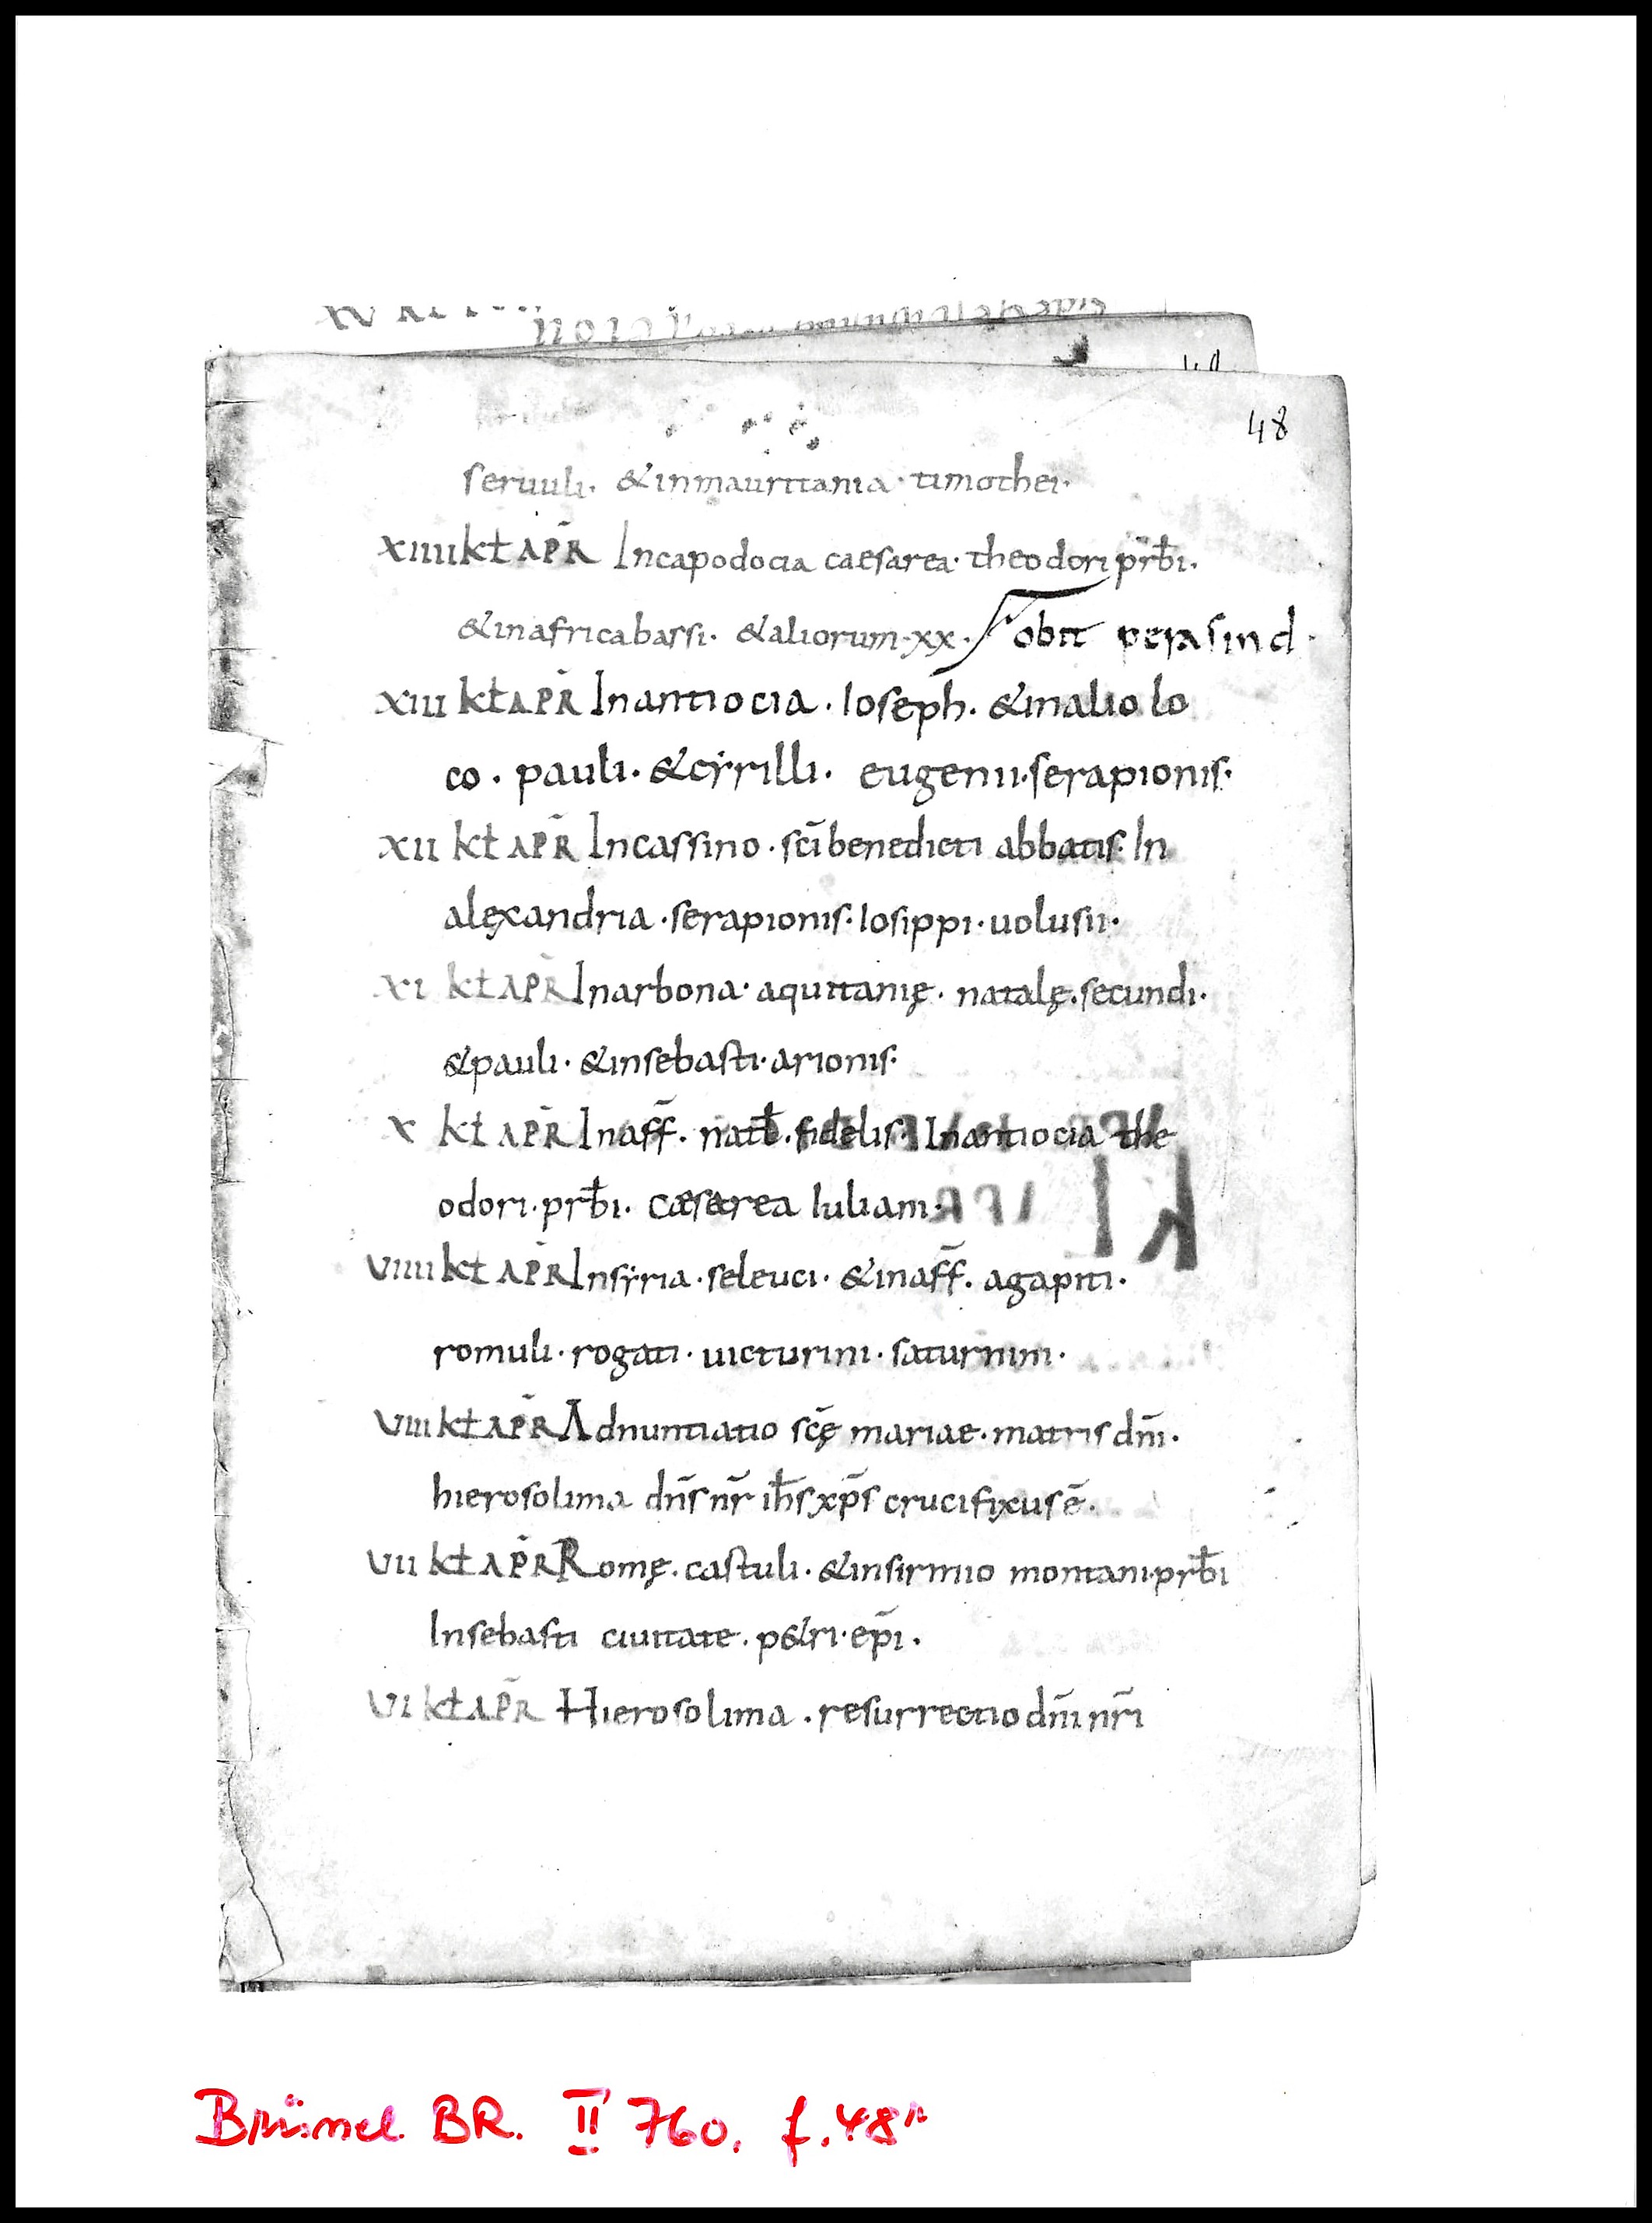 48
seruuli. & inmauritania. timothei.
XIIII KŁ APR̄ Incapodocia caesarea. theodori prb̄i.
& inafrica bassi. & aliorum. xx. obiit perasind.
XIII KŁ APR̄ Inantiocia. Ioseph̄. & inalio lo
co. pauli. & cẏrilli. eugenii. serapionis.
XII KŁ APR̄ Incassino. scī benedicti abbatis. In
alęxandria. serapionis. Iosippi. uolusii.
XI KŁ APR̄ Inarbona. aquitanię. natalę. secundi.
& pauli. & insebasti. arionis.
X KŁ APR̄ Inaff̄. natł. fidelis. Inantiocia the
odori. prb̄i. Cæsarea Iuliani.
VIIII KŁ APR̄ Insẏria. seleuci. & inaff̄. agapiti.
romuli. rogati. uicturini. saturnini.
VIII KŁ APR̄ Adnuntiatio scę̄ mariae. matris dn̄i.
hierosolima dn̄s nr̄ ih̄s xp̄s crucifixus ē.
VII KŁ APR̄ Romę. castuli. & insirmio montani. prb̄i
Insebasti ciuitate. p&ri. ep̄i.
VI KŁ APR̄ Hierosolima. resurrectio dn̄i nr̄i
Brüssel BR. II 760. f. 48r